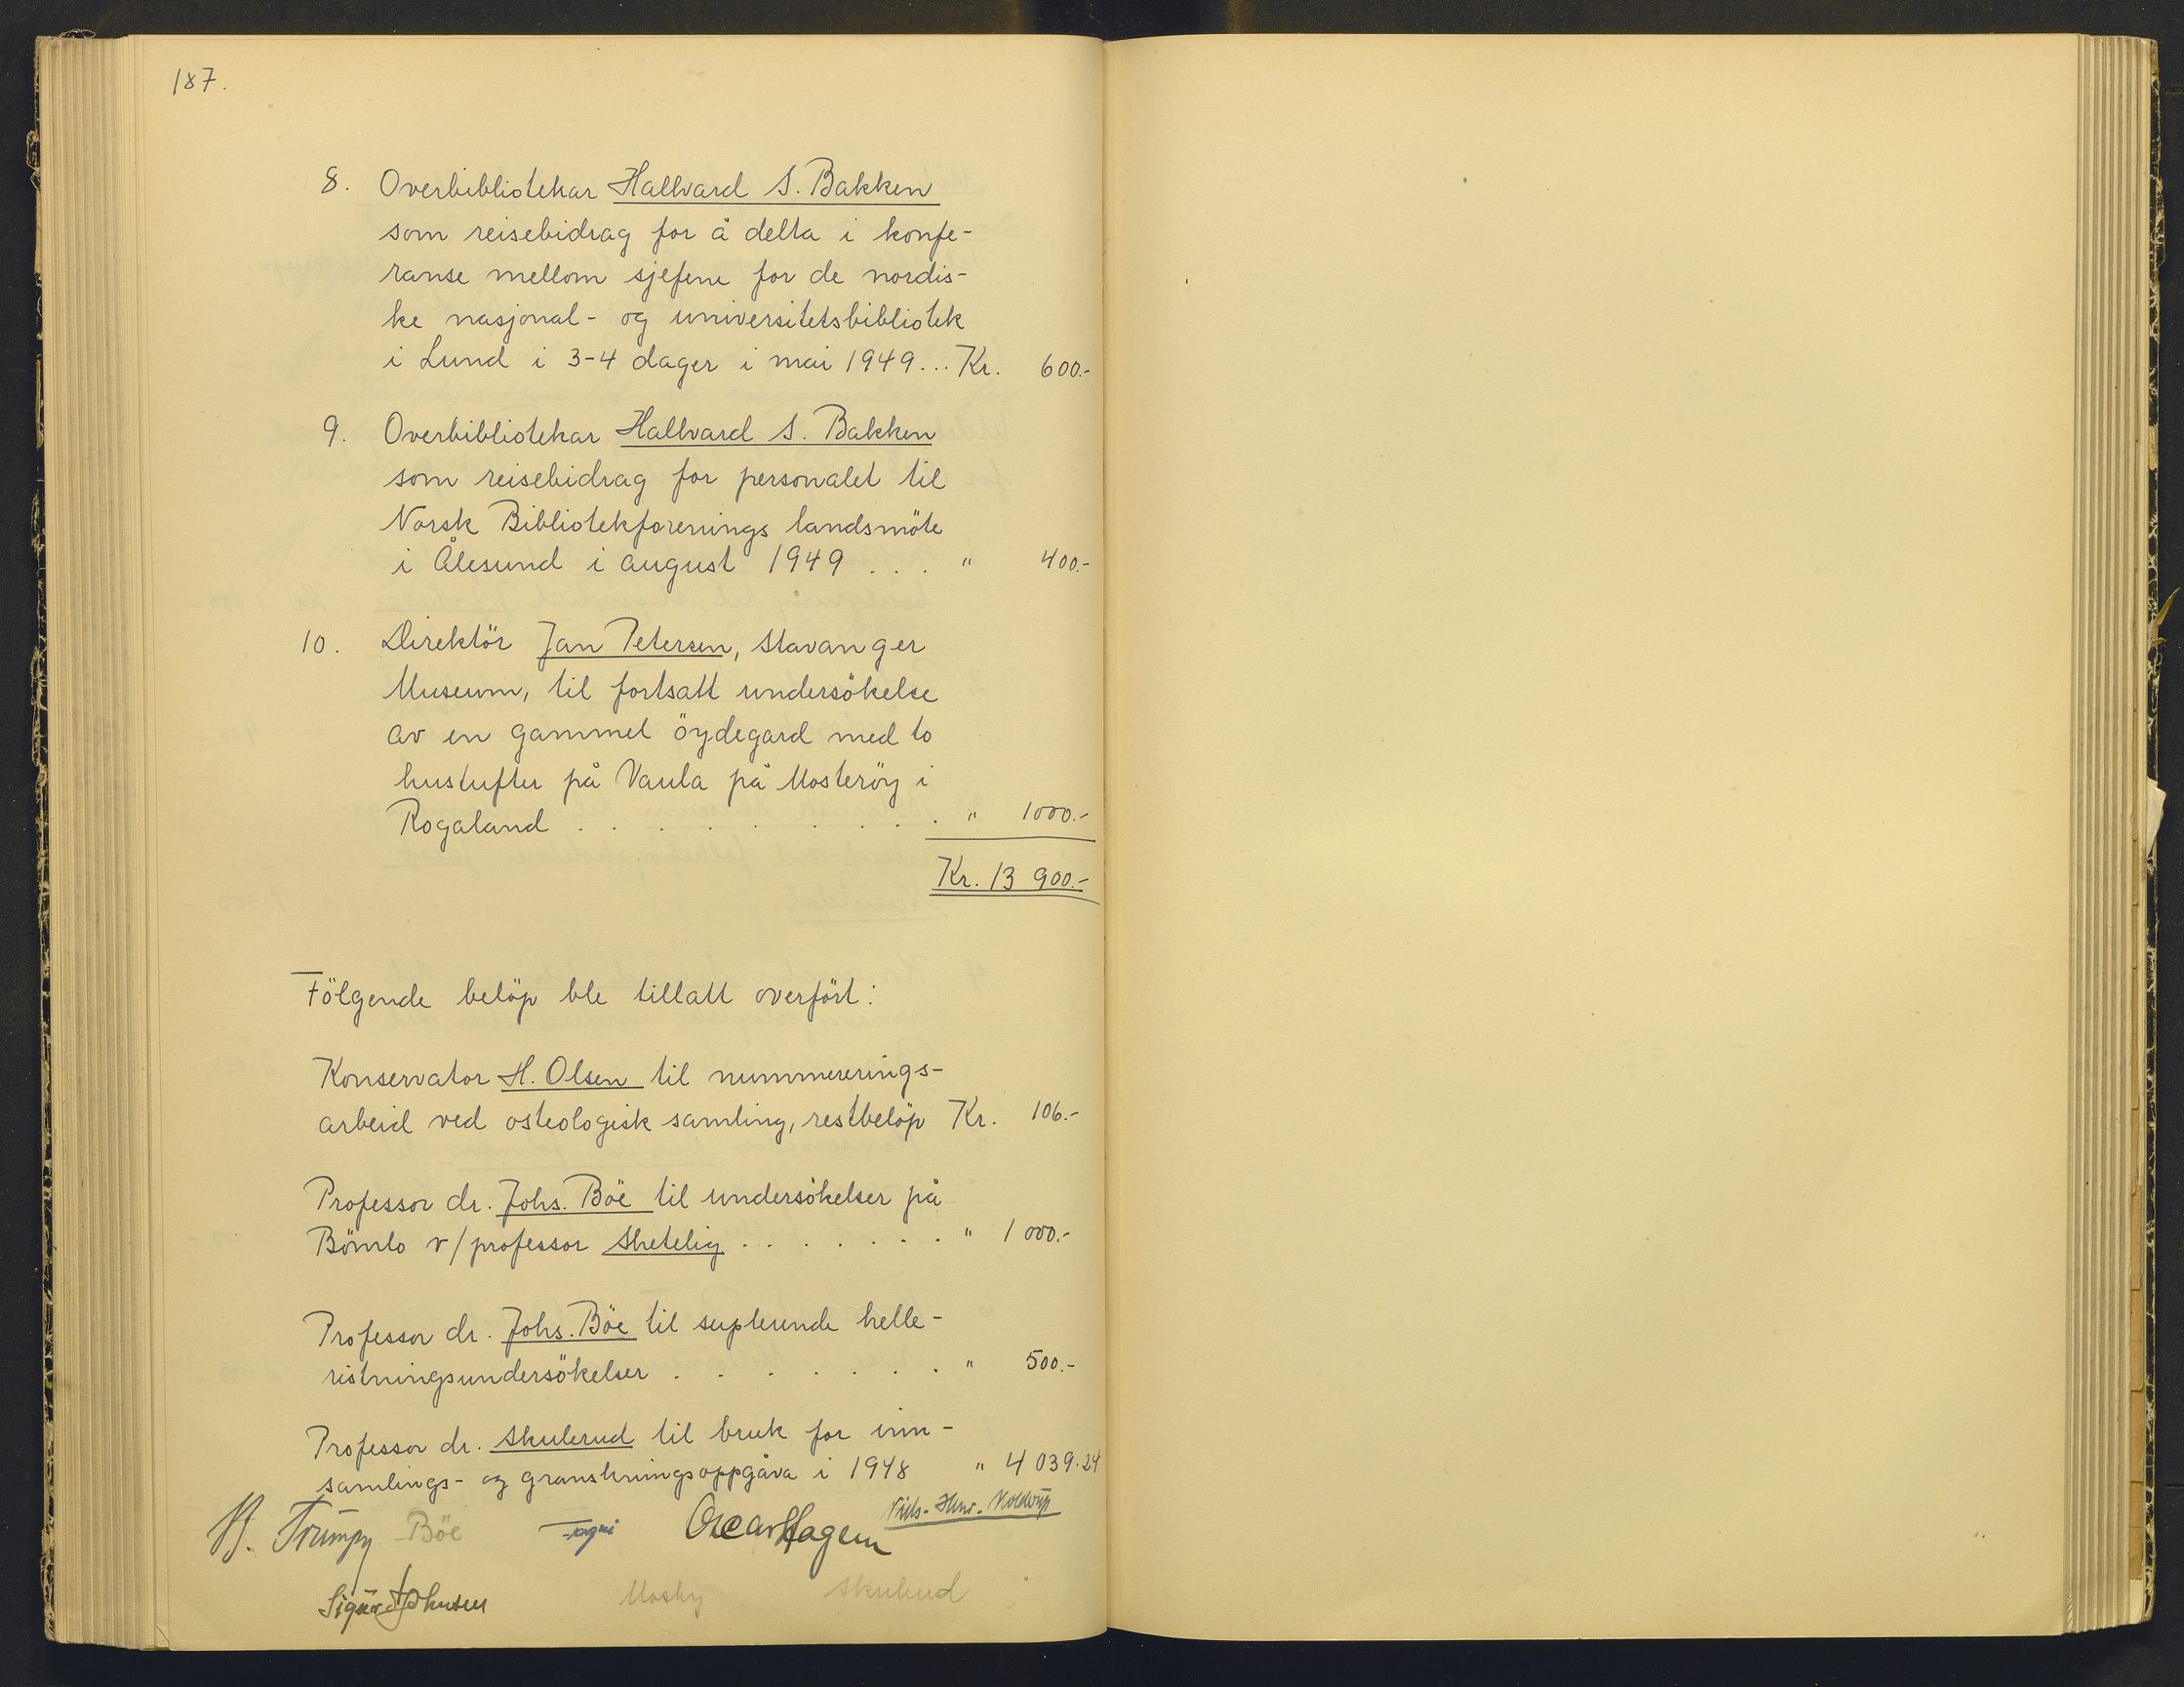 187.
8. Overbibliotekar Hallvard S. Bakken
som reisebidrag for å delta i konfe-
ranse mellom sjefene for de nordis-
ke nasjonal- og universitetsbibliotek
i Lund i 3-4 dager i mai 1949... Kr. 600.-
9. Overbibliotekar Hallvard S. Bakken
som reisebidrag for personalet til
Norsk Bibliotekforenings landsmöte
i Ålesund i august 1949 . . . " 400.-
10. Direktör Jan Petersen, Stavanger
Museum, til fortsatt undersökelse
av en gammel öydegard med to
hustufter på Vaula på Mosteröy i
Rogaland . . . . . . . . . " 1000.-
Kr. 13 900.-
Fölgende belöp ble tillatt overfört:
Konservator H. Olsen til nummererings-
arbeid ved osteologisk samling, restbelöp Kr. 106.-
Professor dr. Johs. Böe til undersökelser på
Bömlo v/professor Shetelig . . . . . . . " 1 000.-
Professor dr. Johs. Böe til suplerende helle-
ristningsundersökelser . . . . . . . " 500.-
Professor dr. Skulerud til bruk for inn-
samlings- og granskningsoppgåva i 1948 " 4 039.24
B. Trumpy Böe Oscar Hagem
Mosby Skulerud